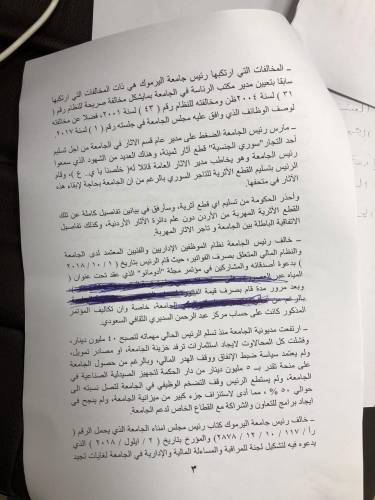 ـ المخالفات التي ارتكبها رئيس جامعة اليرموك هي ذات المخالفات التي ارتكبها
سابقا بتعيين مدير مكتب الرئاسة في الجامعة بمايشكل مخالفة صريحة للنظام رقم (
٣١ ) لسنة ٢٠٠٤ ومخالفته للنظام رقم ( ٤٣ ) لسنة ٢٠٠١، فضلا عن مخالفته
لوصف الوظائف الذي وافق عليه مجلس الجامعة في جلسته رقم ( ١ ) لسنة ٢٠١٧.
ـ مارس رئيس الجامعة الضغط على مدير عام قسم الاثار في الجامعة من اجل تسليم
أحد التجار "سوري الجنسية" قطع أثار ثمينة، وهناك العديد من الشهود الذي سمعوا
رئيس الجامعة وهو يخاطب مدير الاثار العامة قائلا له( خلصنا يا ي.. ع )، وقام
الرئيس بتسليم القطع الاثرية للتاجر السوري بالرغم من ان الجامعة بحاجة لإبقاء هذه
الأثار في متحفها.
وأحذر الحكومة من تسليم اي قطع أثرية، وسأرفق في بياني تفاصيل كاملة عن تلك
القطع الاثرية المهربة من الأردن دون علم دائرة الأثار الأردنية، وكذلك تفاصيل
الاتفاقية الباطلة بين الجامعة و تاجر الاثار المهربة.
ـ خالف رئيس الجامعة نظام الموظفين الإداريين والفنيين المعتمد لدى الجامعة
والنظام المالي المتعلق بصرف الفواتير، حيث قام الرئيس بتاريخ ( ١ / ١٠ / ٢٠١٨
) بدعوة أصدقائه والمشاركين في مؤتمر مجلة "ادوماتو" الذي عقد تحت عنوان (
المياه عبر
وبعد مرور مدة قام بصرف قيمة
بالرغم من الجامعة، خاصة وان تكاليف المؤتمر
المذكور كانت على حساب مركز عبد الرحمن السديري الثقافي السعودي.
ـ ارتفعت مديونية الجامعة منذ تسلم الرئيس الحالي مهماته لتصبح ٤٠ مليون دينار،
وفشلت كل المحاولات لايجاد استثمارات ترفد خزينة الجامعة، او مصادر تمويل،
ولم يعتمد سياسة ضبط الإنفاق ووقف الهدر المالي، وبالرغم من حصول الجامعة
على منحة تقدر بـ ٥ مليون دينار من دار الحكمة لتجهيز الصيدلية الصناعية في
الجامعة، ولم يستطع الرئيس وقف التضخم الوظيفي في الجامعة لتصل نسبته الى
حوالي ٥٠ %، مما أدى لاستنزاف جزء كبير من ميزانية الجامعة، ولم ينجح في
ايجاد برامج للتعاون والشراكة مع القطاع الخاص لدعم الجامعة.
ـ خالف رئيس جامعة اليرموك كتاب رئيس مجلس امناء الجامعة الذي يحمل الرقم (
ر أ / ١١٧ / ١٢ / ١٠ / ٢٨٧٨) والمؤرخ بتاريخ ( ٢ / ايلول / ٢٠١٨ ) الذي
يدعوه فيه لتشكيل لجنة للمراقبة والمساءلة المالية والإدارية في الجامعة لغايات تجيد
٣